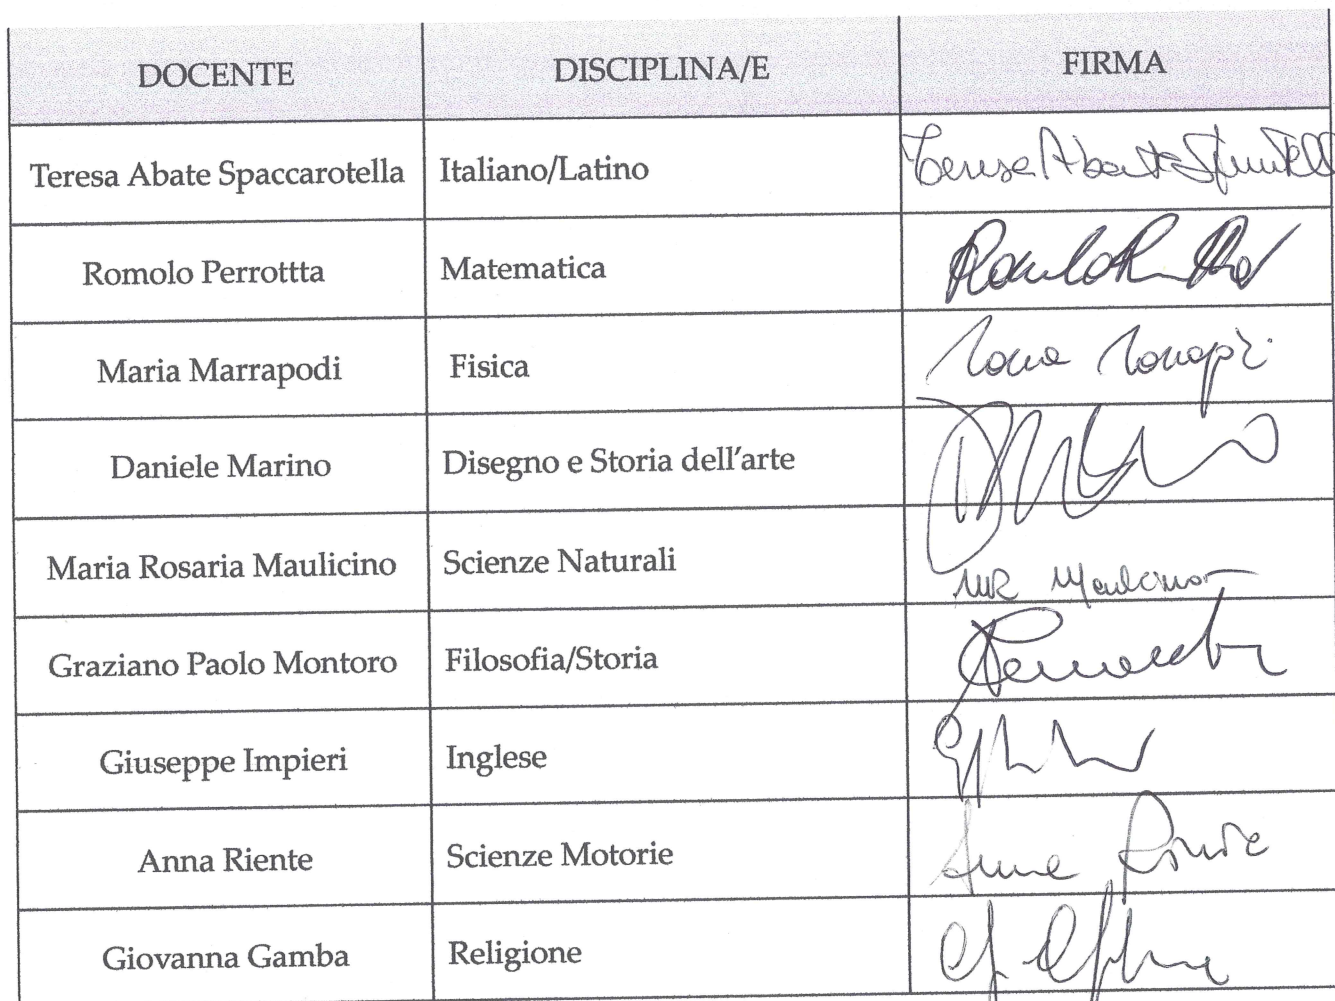 DOCENTE DISCIPLINA/E FIRMA
Teresa Abate Spaccarotella Italiano/Latino Teresa Abate
Romolo Perrottta Matematica
Maria Marrapodi Fisica
Daniele Marino Disegno e Storia dell'arte
Maria Rosaria Maulicino Scienze Naturali MR Maulicino
Graziano Paolo Montoro Filosofia/Storia
Giuseppe Impieri Inglese
Anna Riente Scienze Motorie Anna Riente
Giovanna Gamba Religione